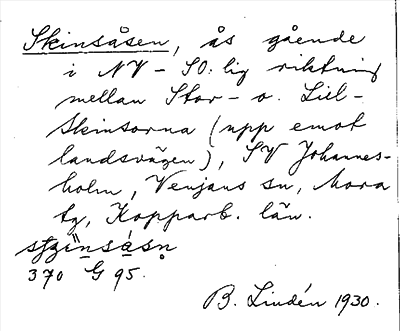 Skinsåsen, ås gående
i NV - SO. lig riktning
mellan Stor- o. Lill-
skinsorna (upp emot
landsvägen), SV Johannes-
holm, Venjans sn, Mora
tg, Kopparb. län.
370 G 95.
B. Lindén 1930.